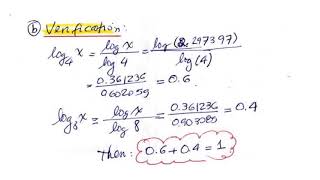 (b) Verification:
log₄ x = log x / log 4 = log(2.297397) / log(4)
= 0.361236 / 0.602059 = 0.6
log₈ x = log x / log 8 = 0.361236 / 0.903089 = 0.4
Then: 0.6 + 0.4 = 1